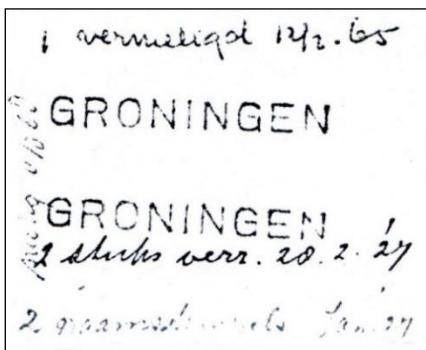 1 vernietigd 12/2.65
GRONINGEN
GRONINGEN
2 stuks verz. 20.2.'27
2 naamstempels Jan. '27